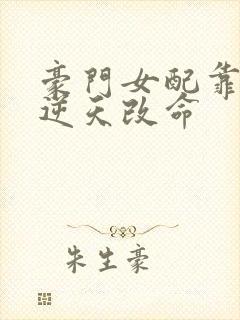 豪門女配靠
逆天改命
朱生豪